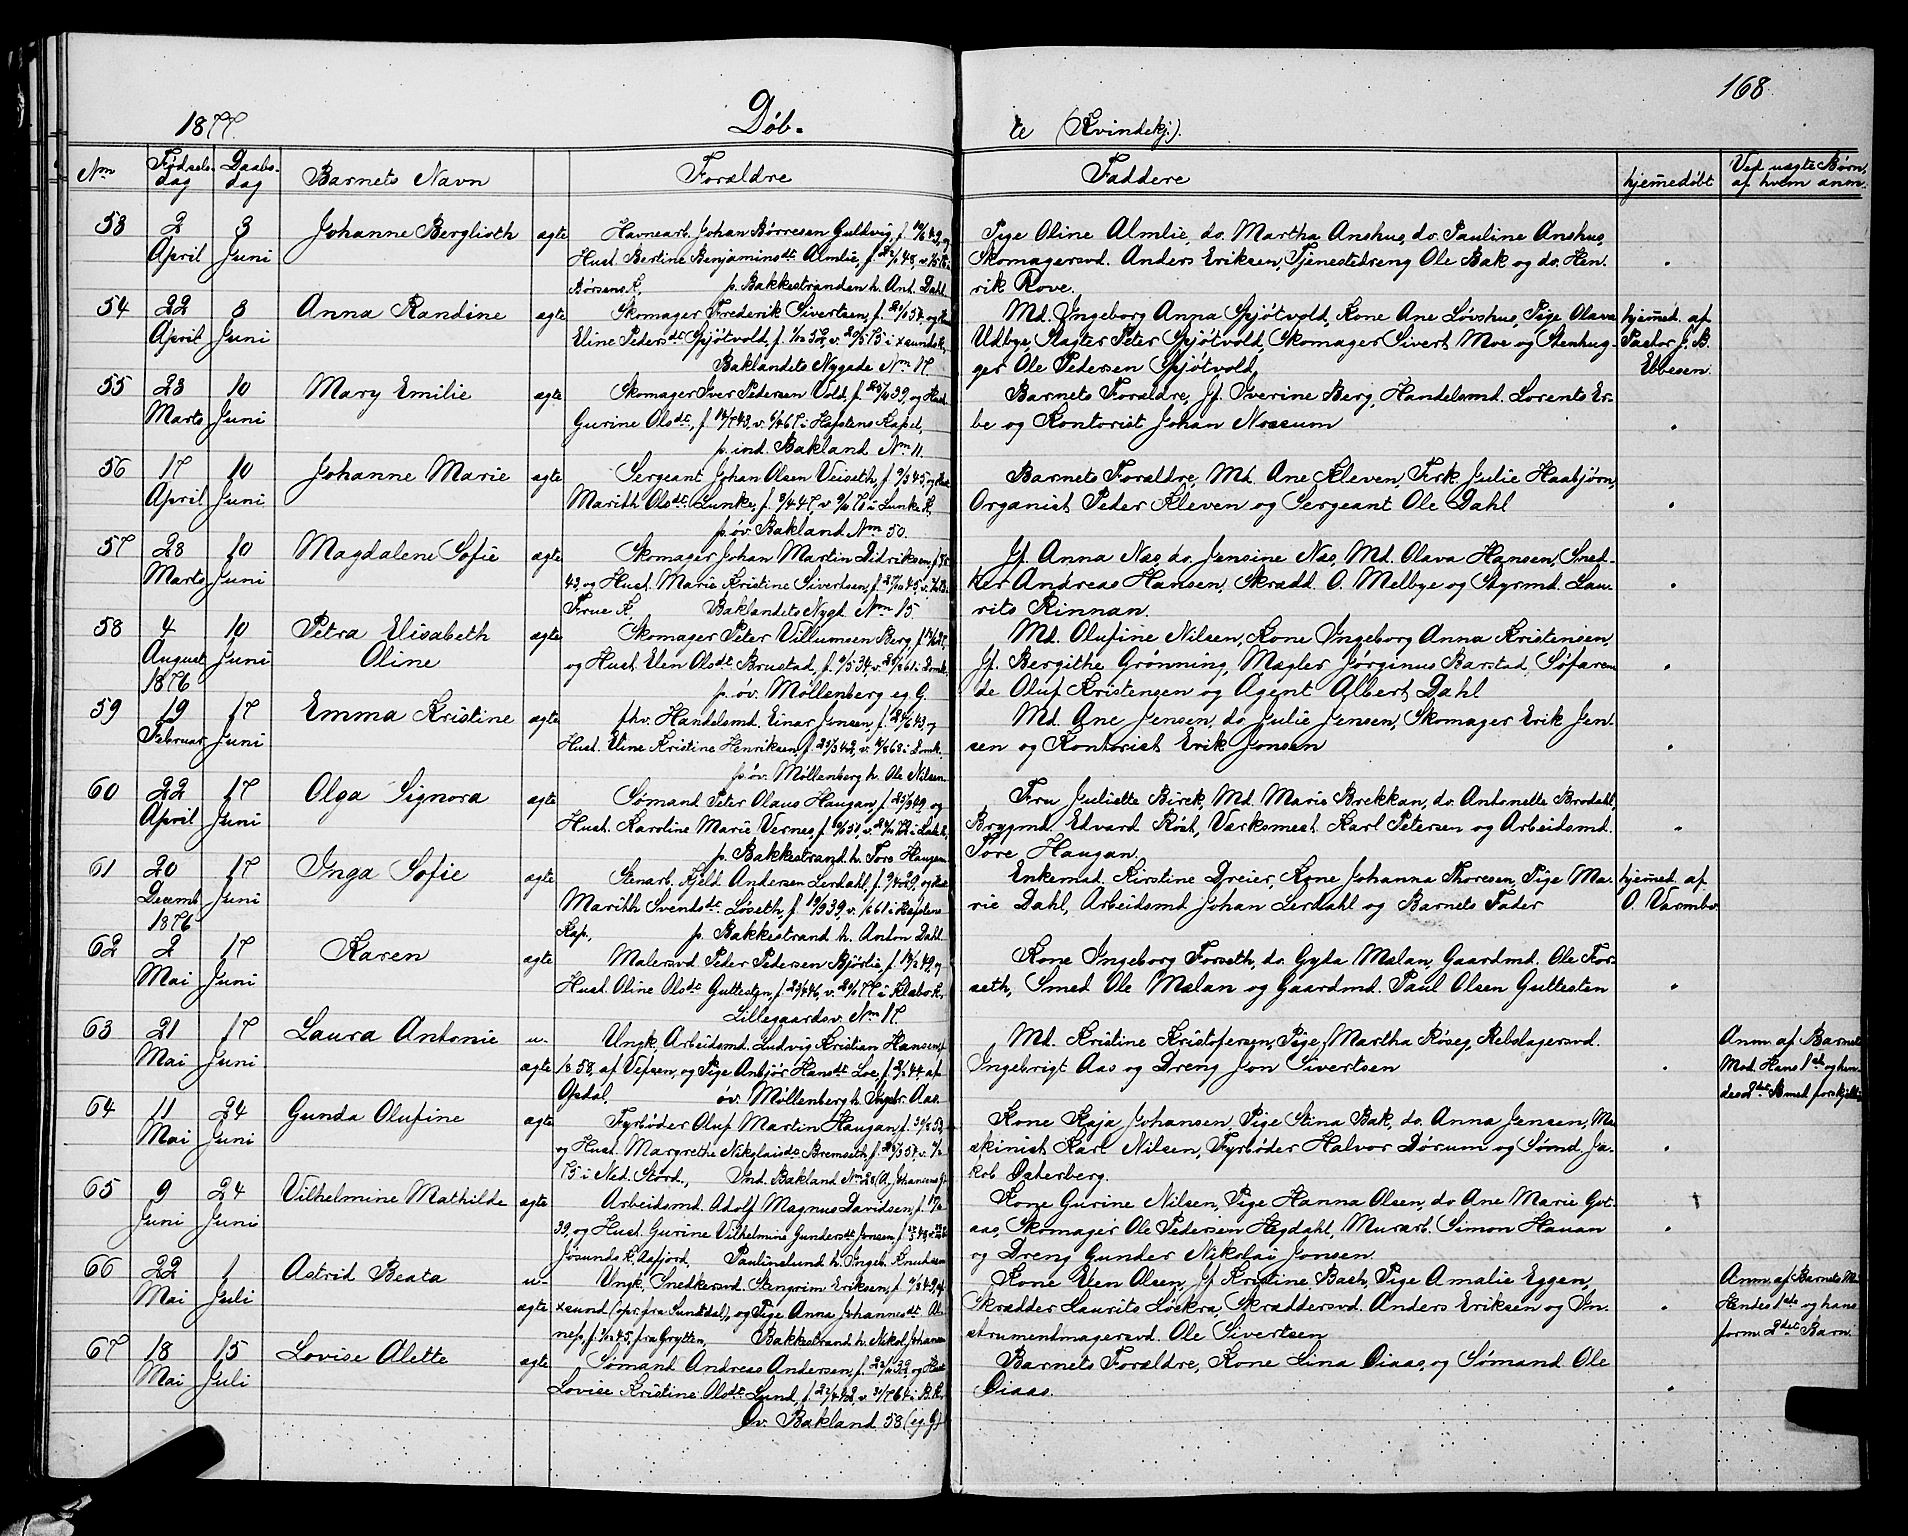 168
1877. Døb- te (Kvindekj.).
Nm Fødsels- dag Daabs- dag Barnets Navn Forældre Faddere hjemmedøbt Ved uægte Børn, af hvem anm.
53 2 April 3 Juni Johanne Berglioth ægte
Havnearb. Johan Börresen Guldvig, og
Hust. Bertine Benjaminsdt. Almlie,
Børsens K. p. Bakkestranden h. Ant. Dahl
Pige Oline Almlie, do. Martha Anshus, do. Pauline Anshus,
Skomagersvd. Anders Eriksen, Tjenestedreng Ole Bak og do. Hen-
rik Rove.
54 22 April 3 Juni Anna Randine ægte
Skomager Frederik Sivertsen, og
Eline Pedersdt. Spjötvold,
Baklandets Nygade Nm 17.
Md. Ingeborg Anna Spjötvold, Kone Ane Løvshus, Pige Olava
Udbye, Slagter Peter Spjötvold, Skomager Sivert Moe og Stenhug-
ger Ole Pedersen Spjötvold,
hjemmed. af
Pastor J. B.
Ebbesen.
55 23 Marts 10 Juni Mary Emilie ægte
Skomager Iver Pedersen Vold, og Hust.
Gurine Olsdt., i Hafstens Kapel,
p. ind. Bakland Nm 11.
Barnets Forældre, Jf. Iverine Berg, Handelsmd. Lorents Er-
be og Kontorist Johan Nossum
56 17 April 10 Juni Johanne Marie ægte
Sergeant Johan Olsen Veiseth, og Hust.
Marith Olsdt. Lunke, i Lunke K.
p. öv. Bakland Nm 50.
Barnets Forældre, Md. Ane Kleven, Frk. Julie Haabjørn,
Organist Peder Kleven og Sergeant Ole Dahl
57 28 Marts 10 Juni Magdalene Sofie ægte
Skomager Johan Martin Didriksen,
43, og Hust. Marie Kristine Sivertsen,
Frue K. Baklandets Nygd. Nm 15.
Jf. Anna Næs, do. Jensine Næs, Md. Olava Hansen, Sned-
ker Andreas Hansen, Skrædd. O. Melbye og Styrmd. Lau-
rits Rinnan.
58 4 August 1876 10 Juni Petra Elisabeth Oline ægte
Skomager Peter Villumsen Berg,
og Hust. Elen Olsdt. Brustad, i Domk.
p. öv. Möllenberg eg. G.
Md. Olufine Nilsen, Kone Ingeborg Anna Kristensen,
Jf. Bergithe Grønning, Mægler Jörginus Barstad, Söfaren-
de Oluf Kristensen og Agent Albert Dahl
59 19 Februar 17 Juni Emma Kristine ægte
fhv. Handelsmd. Einar Jensen, og
Hust. Eline Kristine Henriksen, i Domk.
p. öv. Möllenberg h. Ole Nilsen
Md. Ane Jensen, do. Julie Jensen, Skomager Erik Jen-
sen og Kontorist Erik Jonsen
60 22 April 17 Juni Olga Signora ægte
Sømand Peter Olaus Haugan, og
Hust. Karoline Marie Vernes,
p. Bakkestrand h. Tore Haugan
Fru Juliette Birck, Md. Marie Brekkan, do. Antonette Brodahl,
Brygmd. Edvard Röst, Værksmest. Karl Petersen og Arbeidsmd.
Tore Haugan.
61 20 Decemb. 1876 17 Juni Inga Sofie ægte
Stenarb. Kjeld Andersen Lerdahl, og Hust.
Marith Svendsdt. Løseth, i Hafstens
Kap., p. Bakkestrand h. Anton Dahl
Enkemad. Kirstine Dreier, Kone Johanna Thoresen, Pige Ma-
rie Dahl, Arbeidsmd. Johan Lerdahl og Barnets Fader
hjemmed. af
O. Varmbo.
62 2 Mai 17 Juni Karen ægte
Malersvd. Peder Pedersen Bjørlie, og
Hust. Oline Olsdt. Guttesten, i Klæbo K.
Lillegaardsv. Nm 17.
Kone Ingeborg Forseth, do. Gyda Mælan, Gaardmd. Ole For-
seth, Smed Ole Mælan og Gaardmd. Paul Olsen Guttesten
63 21 Mai 17 Juni Laura Antonie u- ægte
Ungk. Arbeidsmd. Ludvig Kristian Hansen, f.
58, af Vefsen, og Pige Anbjør Hansdt. Loe, af
Opdal, öv. Möllenberg h. Ingebr. Aas.
Md. Kristine Kristofersen, Pige Martha Röseg, Rebslagersvd.
Ingebrigt Aas og Dreng Jon Sivertsen
Anm. af Barnets
Mod. Hans 1ste og hen-
des 2det B. med forskjellig
64 11 Mai 24 Juni Gunda Olufine ægte
Fyrbøder Oluf Martin Haugan,
og Hust. Margrethe Nikolaisdt. Bremseth,
75 i Ned. Stord., Ind. Bakland Nm 28 (A. Johansens G.)
Kone Kaja Johansen, Pige Stina Bak, do. Anna Jensen, Ma-
skinist Karl Nilsen, Fyrbøder Halvor Dørum og Sømd. Ja-
kob Osterberg.
65 9 Juni 24 Juni Vilhelmine Mathilde ægte
Arbeidsmd. Adolf Magnus Davidsen,
39, og Hust. Gurine Vilhelmine Gundersdt. Jonsen,
Jøsunds K. Aafjord, Paulinelund h. Ingeb. Knudsen
Kone Gurine Nilsen, Pige Hanna Olsen, do. Ane Marie Got-
aas, Skomager Ole Pedersen Hegdahl, Murarb. Simon Hauan
og Dreng Gunder Nikolai Jonsen.
66 22 Mai 1 Juli Astrid Beata u- ægte
Ungk. Snedkersvd. Stengrim Eriksen,
Xsund (opr. fra Sundal), og Pige Anna Johannesdt. Al-
nes, fra Grytten, Bakkestrand h. Nikol. Johansen
Kone Elen Olsen, Jf. Kristine Bach, Pige Amalie Eggen,
Skrædder Laurits Høekra, Skræddersvd. Anders Eriksen og In-
strumentmagersvd. Ole Sivertsen
Anm. af Barnets Mo.
Hendes 1ste og hans
form. 2det Barn.
67 18 Mai 15 Juli Lovise Alette ægte
Sømand Andreas Andersen, og Hust.
Lovise Kristine Olsdt. Lund, i B. K.
Öv. Bakland 58 (eg. G.)
Barnets Forældre, Kone Lina Oiaas, og Sømand Ole
Oiaas.